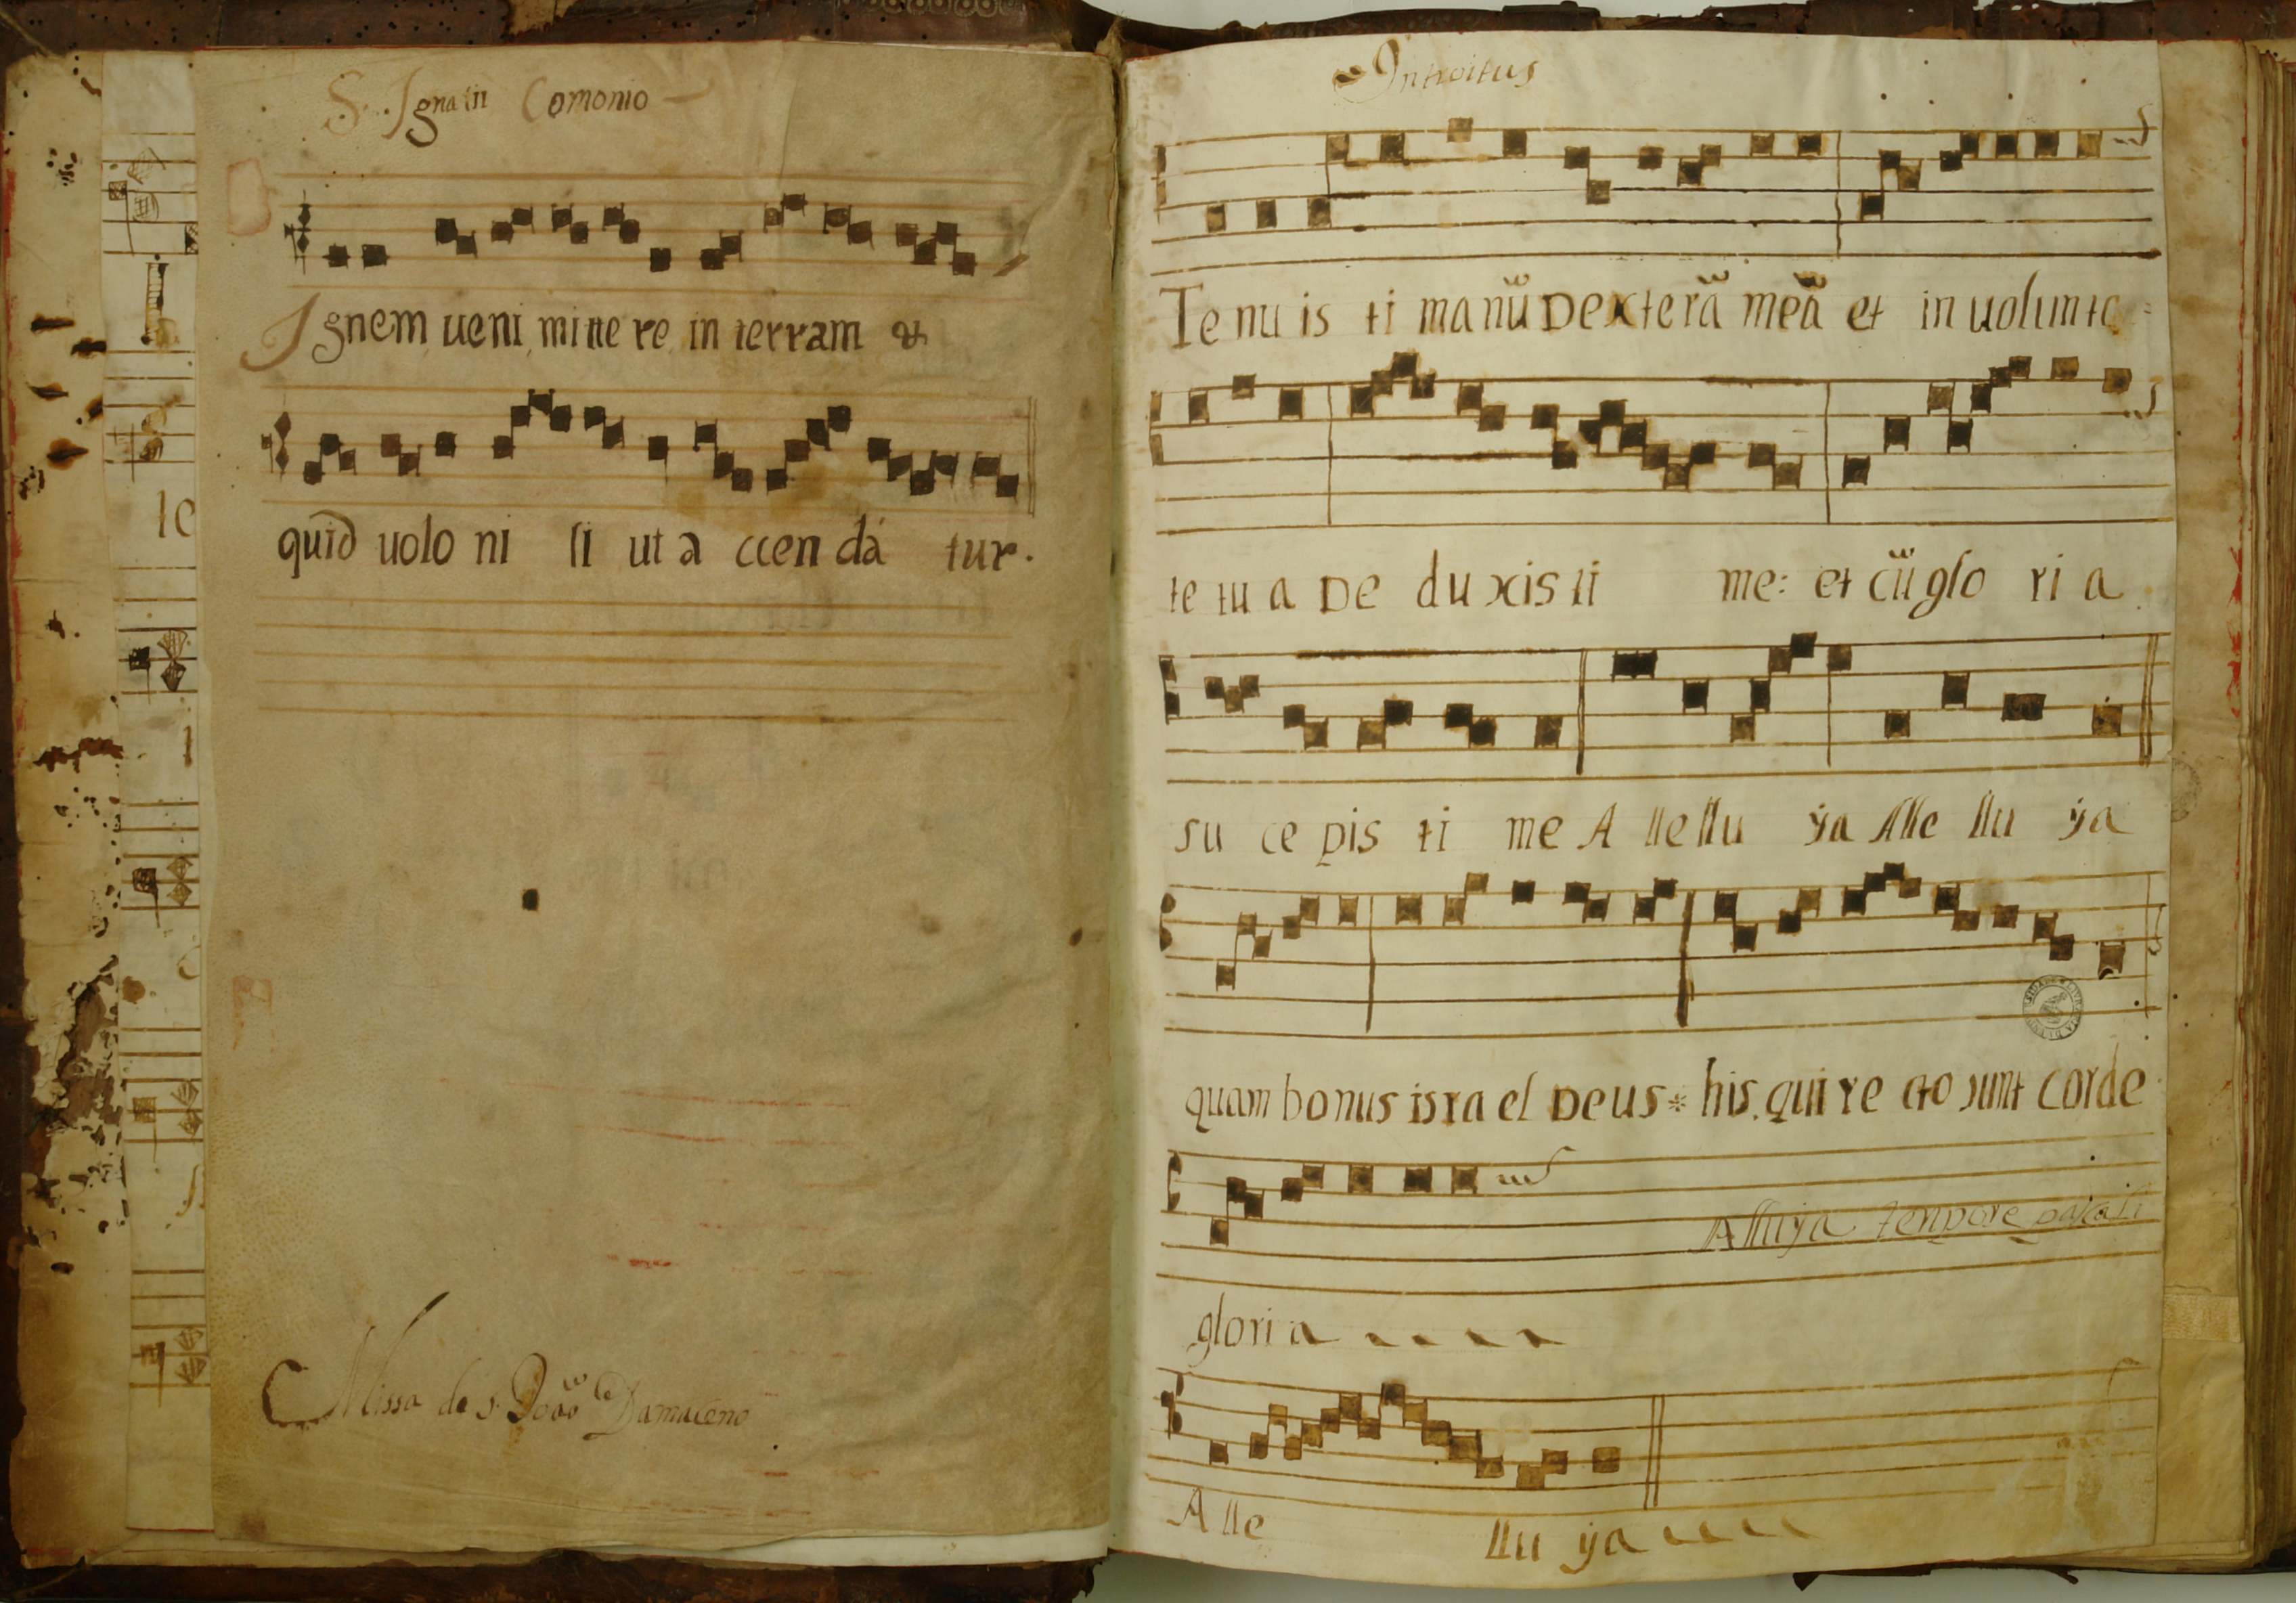 S. Ignatii Comonio
Ignem ueni mitte re in terram &
quid uolo ni si ut a ccen dá tur.
Missa de s. Joaõ Damaceno
te
Introitus
Te nu is ti ma nũ Dexte rã meã et in uolunta =
te tu a De du xis ti me: et cũ glo ri a
su ce pis ti me A lle llu ÿa Alle llu ÿa
quam bonus isra el Deus * his qui re cto sunt corde
Alluÿa tenpore pascali
glori a
A lle llu ÿa